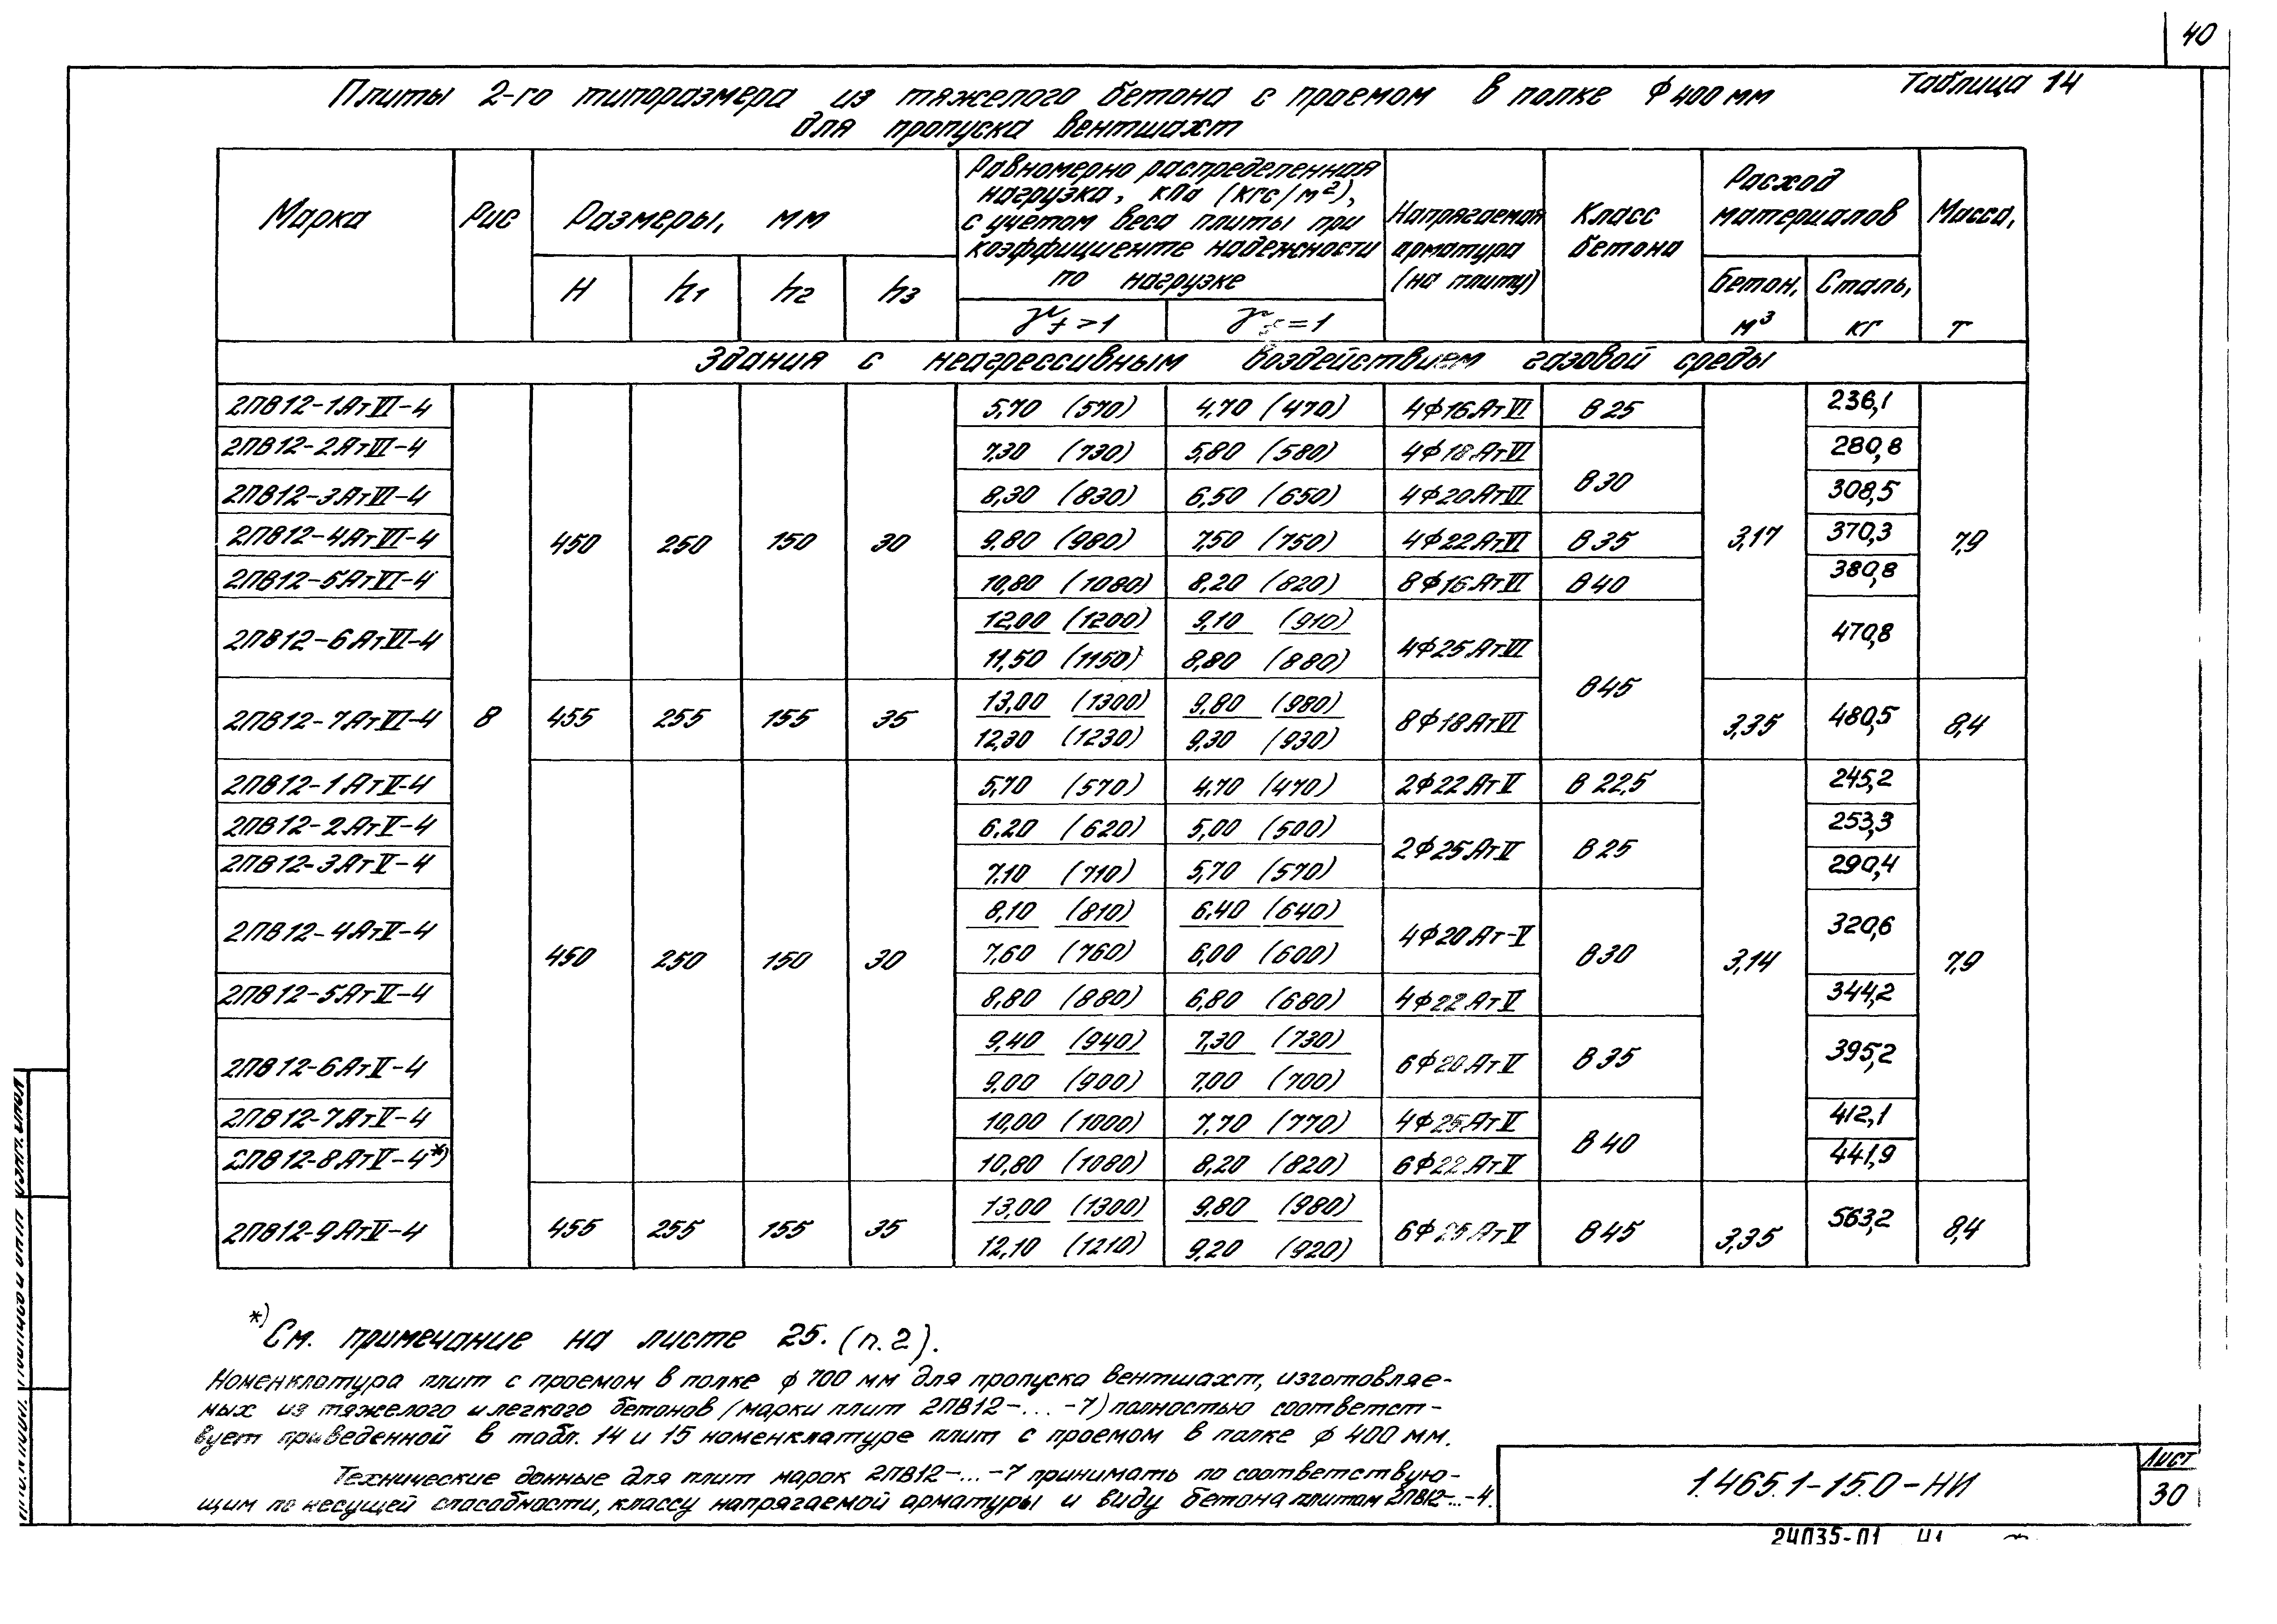 40
Таблица 14
Плиты 2-го типоразмера из тяжелого бетона с проемом в полке ф 400 мм
для пропуска вентшахт
Марка Рис Размеры, мм Равномерно распределенная нагрузка, кПа (кгс/м²), с учетом веса плиты при коэффициенте надежности по нагрузке Напрягаемая арматура (на плиту) Класс бетона Расход материалов Масса, т
H h1 h2 h3 γf >1 γf =1 Бетон, м³ Сталь, кг
Здания с неагрессивным воздействием газовой среды
2ПВ12-1АтVI-4 8 450 250 150 30 5,70 (570) 4,70 (470) 4ф16АтVI В25 3,17 236,1 7,9
2ПВ12-2АтVI-4 7,30 (730) 5,80 (580) 4ф18АтVI В30 280,8
2ПВ12-3АтVI-4 8,30 (830) 6,50 (650) 4ф20АтVI 308,5
2ПВ12-4АтVI-4 9,80 (980) 7,50 (750) 4ф22АтVI В35 370,3
2ПВ12-5АтVI-4 10,80 (1080) 8,20 (820) 8ф16АтVI В40 380,8
2ПВ12-6АтVI-4 12,00 (1200) 9,10 (910) 4ф25АтVI В45 470,8
11,50 (1150) 8,80 (880)
2ПВ12-7АтVI-4 455 255 155 35 13,00 (1300) 9,80 (980) 8ф18АтVI 3,35 480,5 8,4
12,30 (1230) 9,30 (930)
2ПВ12-1АтV-4 450 250 150 30 5,70 (570) 4,70 (470) 2ф22АтV В22,5 3,14 245,2 7,9
2ПВ12-2АтV-4 6,20 (620) 5,00 (500) 2ф25АтV В25 253,3
2ПВ12-3АтV-4 7,10 (710) 5,70 (570) 290,4
2ПВ12-4АтV-4 8,10 (810) 6,40 (640) 4ф20Ат-V В30 320,6
7,60 (760) 6,00 (600)
2ПВ12-5АтV-4 8,80 (880) 6,80 (680) 4ф22АтV 344,2
2ПВ12-6АтV-4 9,40 (940) 7,30 (730) 6ф20АтV В35 395,2
9,00 (900) 7,00 (700)
2ПВ12-7АтV-4 10,00 (1000) 7,70 (770) 4ф25АтV В40 412,1
2ПВ12-8АтV-4*) 10,80 (1080) 8,20 (820) 6ф22АтV 441,9
2ПВ12-9АтV-4 455 255 155 35 13,00 (1300) 9,80 (980) 6ф25АтV В45 3,35 563,2 8,4
12,10 (1210) 9,20 (920)
*) См. примечание на листе 25. (п.2).
Номенклатура плит с проемом в полке ф 700 мм для пропуска вентшахт, изготовляе-
мых из тяжелого и легкого бетонов (марки плит 2ПВ12-...-7) полностью соответст-
вует приведенной в табл. 14 и 15 номенклатуре плит с проемом в полке ф 400 мм.
Технические данные для плит марок 2ПВ12-...-7 принимать по соответствую-
щим по несущей способности, классу напрягаемой арматуры и виду бетона плитам 2ПВ12-...-4.
1.465.1-15.0-НИ
Лист
30
24035-01 41